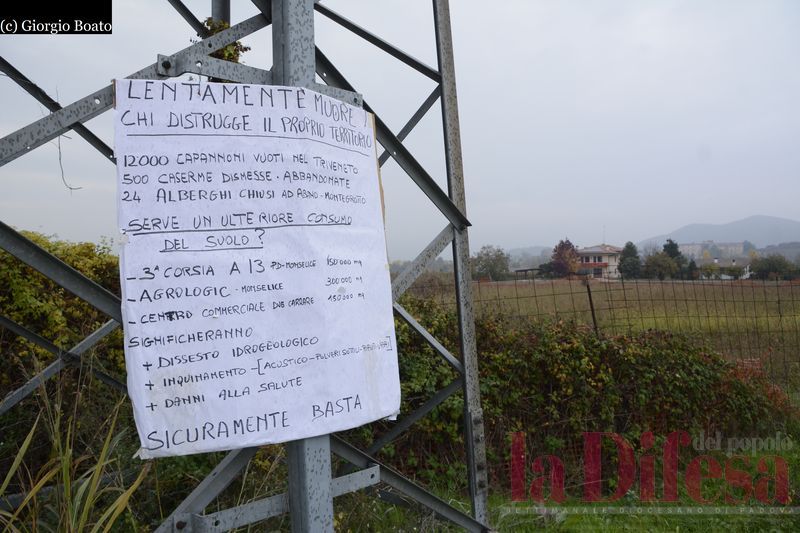 (c) Giorgio Boato
LENTAMENTE MUORE,
CHI DISTRUGGE IL PROPRIO TERRITORIO
12000 CAPANNONI VUOTI NEL TRIVENETO
500 CASERME DISMESSE - ABBANDONATE
24 ALBERGHI CHIUSI AD ABANO - MONTEGROTTO
SERVE UN ULTERIORE CONSUMO
DEL SUOLO?
- 3ª CORSIA A 13 PD-MONSELICE 150000 mq
- AGROLOGIC - MONSELICE 300000 mq
- CENTRO COMMERCIALE DUE CARRARE 150000 mq
SIGNIFICHERANNO
+ DISSESTO IDROGEOLOGICO
+ INQUINAMENTO - [ACUSTICO - POLVERI SOTTILI -
+ DANNI ALLA SALUTE
SICURAMENTE BASTA
la Difesa del popolo
SETTIMANALE DIOCESANO DI PADOVA